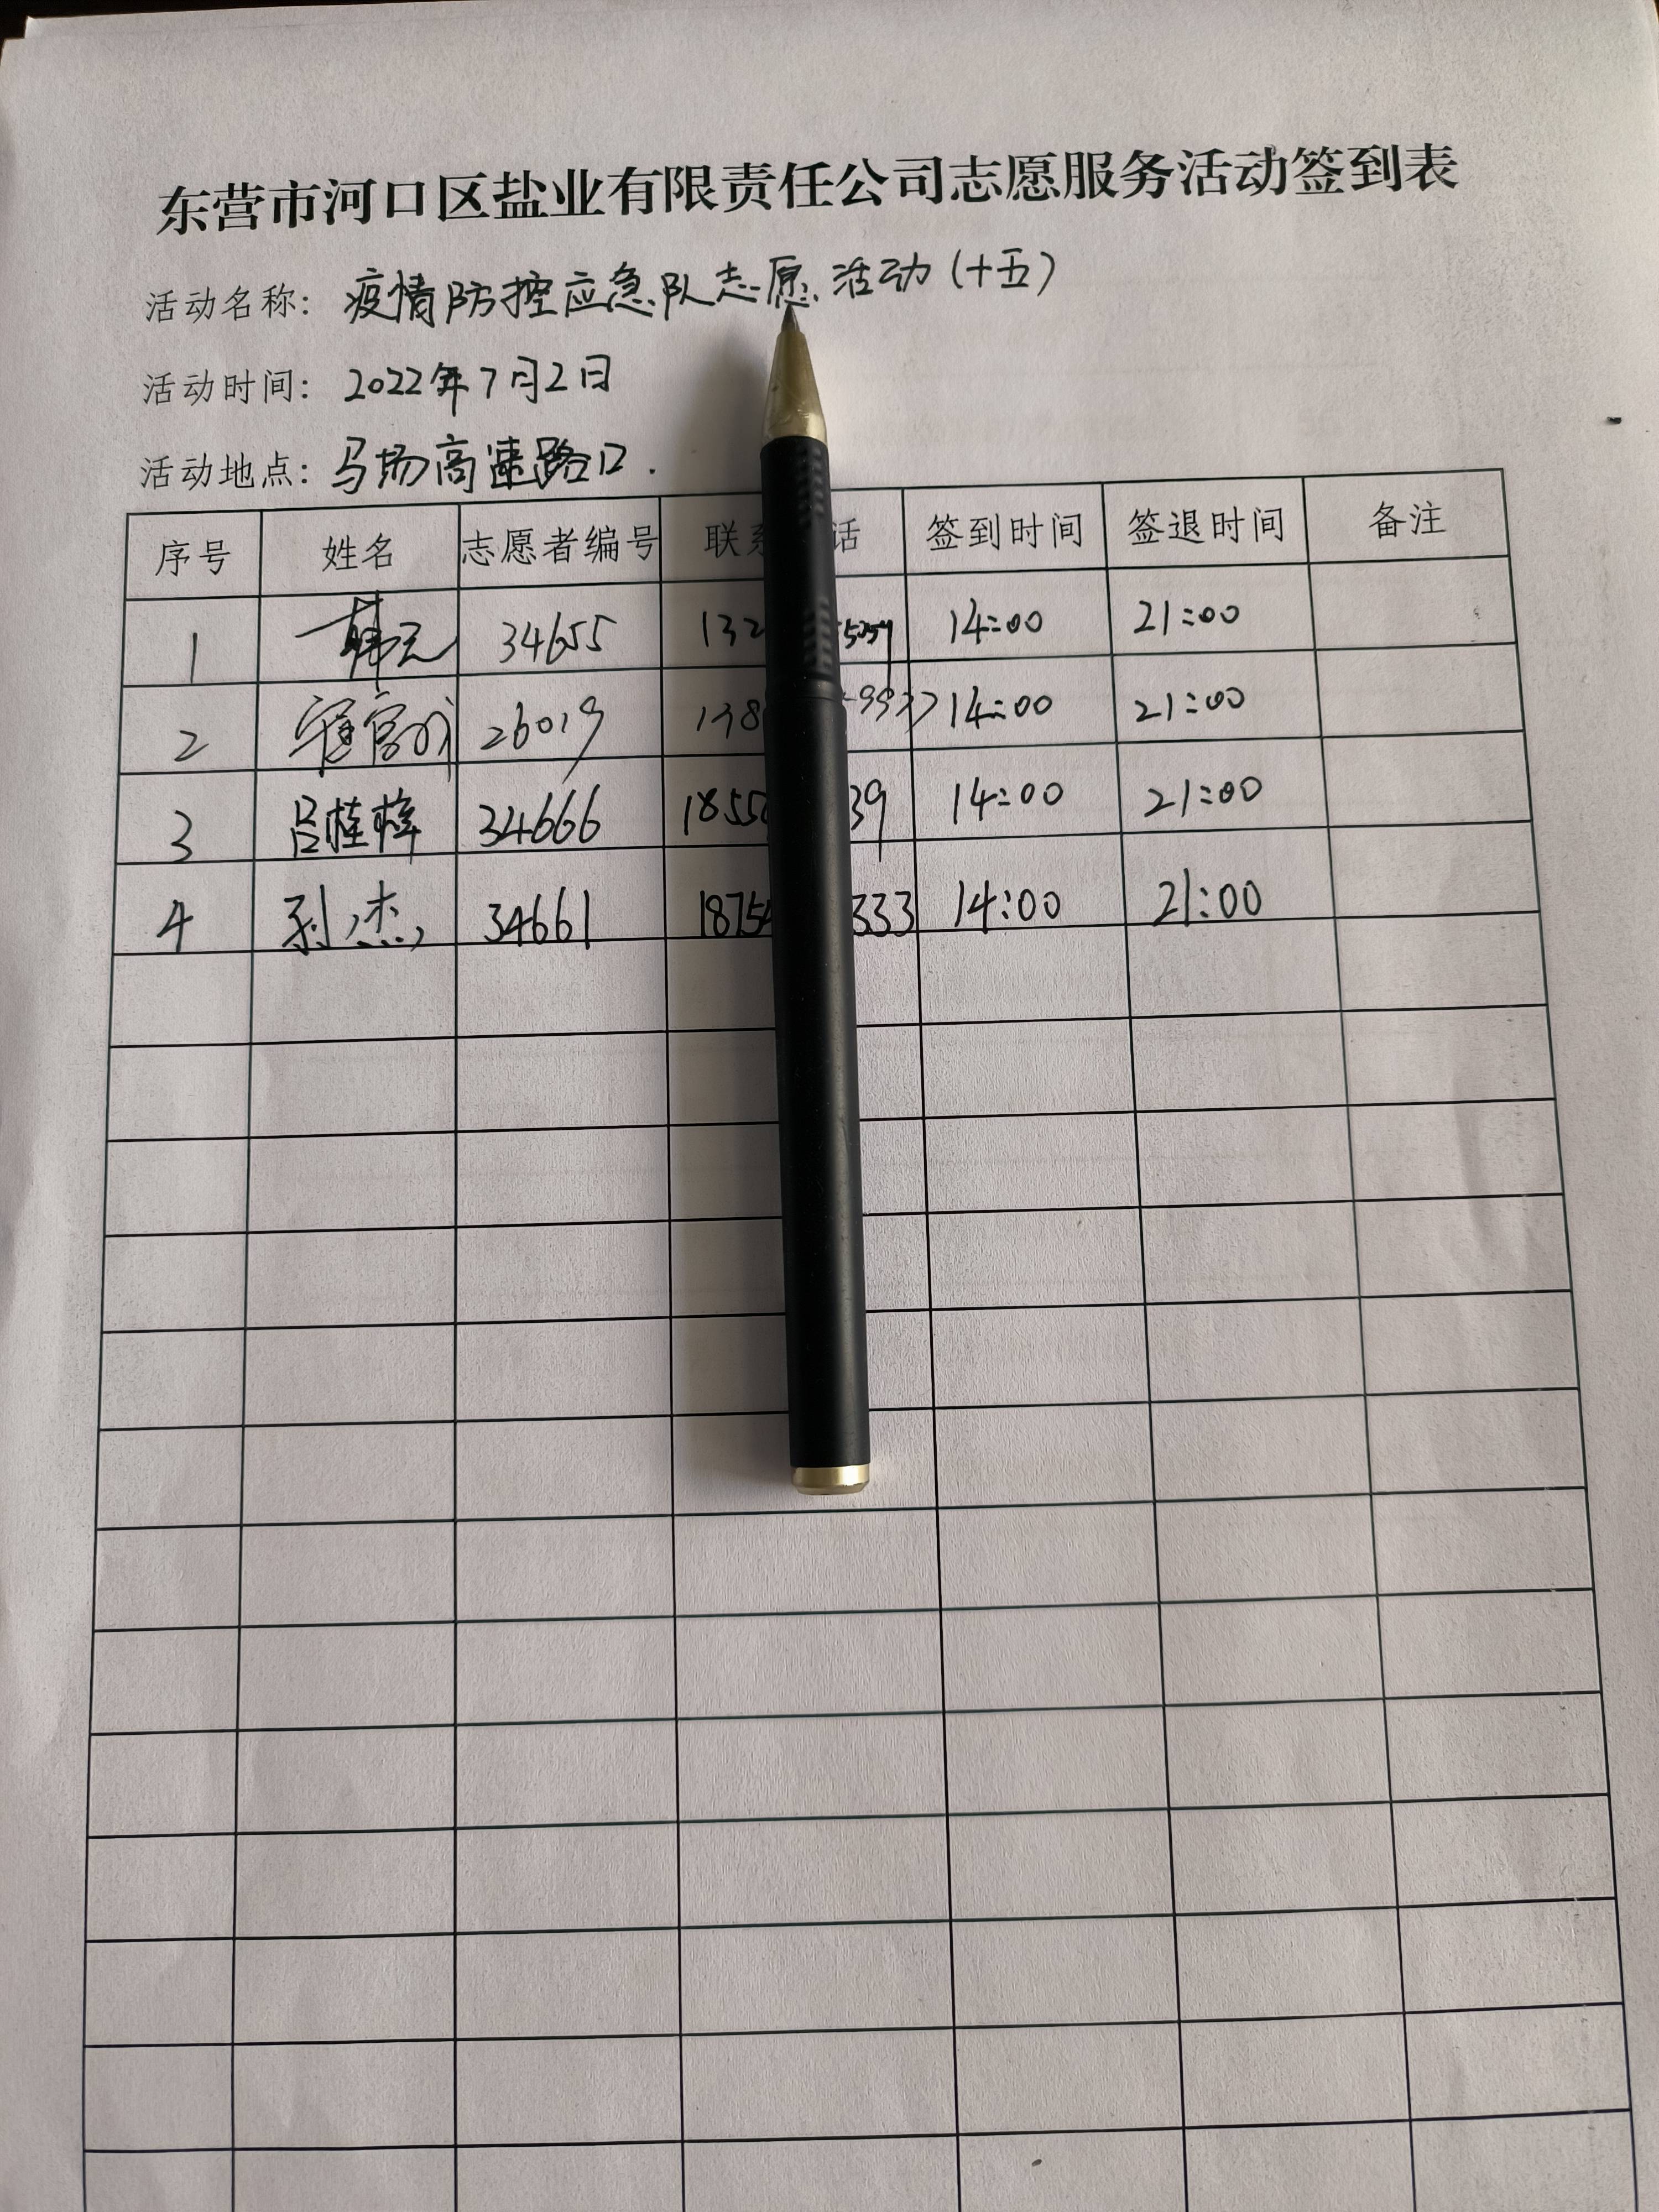 东营市河口区盐业有限责任公司志愿服务活动签到表
活动名称: 疫情防控应急队志愿活动(十五)
活动时间: 2022年7月2日
活动地点: 马场高速路口.
序号 姓名 志愿者编号 联系 话 签到时间 签退时间 备注
1 34655 132 14:00 21:00
2 26019 138 9937 14:00 21:00
3 吕桂梓 34666 1855 39 14:00 21:00
4 孙杰 34661 1875 333 14:00 21:00